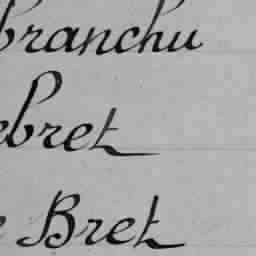 branchu
ebret
e Bret